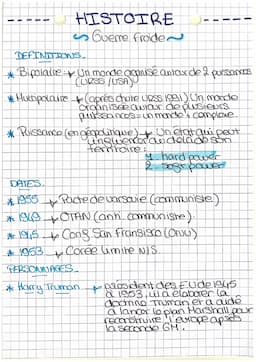 HISTOIRE
Guerre froide
DEFINITIONS
* Bipolaire → Un monde organisé autour de 2 puissances
(URSS/USA)
* Multipolaire → (après chute URSS 1991) Un monde
organisée autour de plusieurs
puissances : un monde + complexe.
* Puissance (en géopolitique) → Un état qui peut
influencer au delà de son
térritoire :
1. hard power
2. soft power
DATES
* 1955 → Pacte de varsovie (communiste)
* 1949 → OTAN (anti communiste)
* 1945 → Conf San Francisco (ONU)
* 1953 → Corée limite N/S
PERSONNAGES
* Harry Truman → président des EU de 1945
à 1953, il a élaborer la
doctrine Truman et a aidé
à lancer le plan Marshall pour
reconstruire l'europe après
la seconde GM.